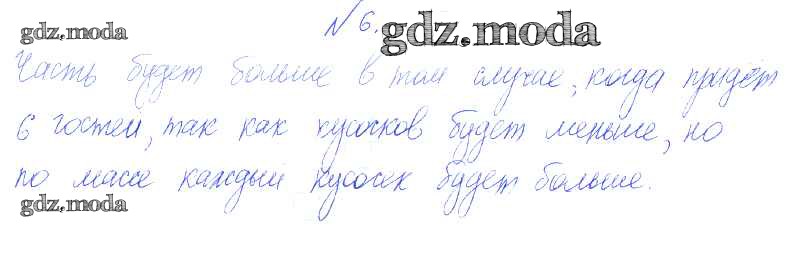 № 6.
gdz.moda
gdz.moda
Часть будет больше в том случае, когда придёт
6 гостей, так как кусочков будет меньше, но
по массе каждый кусочек будет больше.
gdz.moda